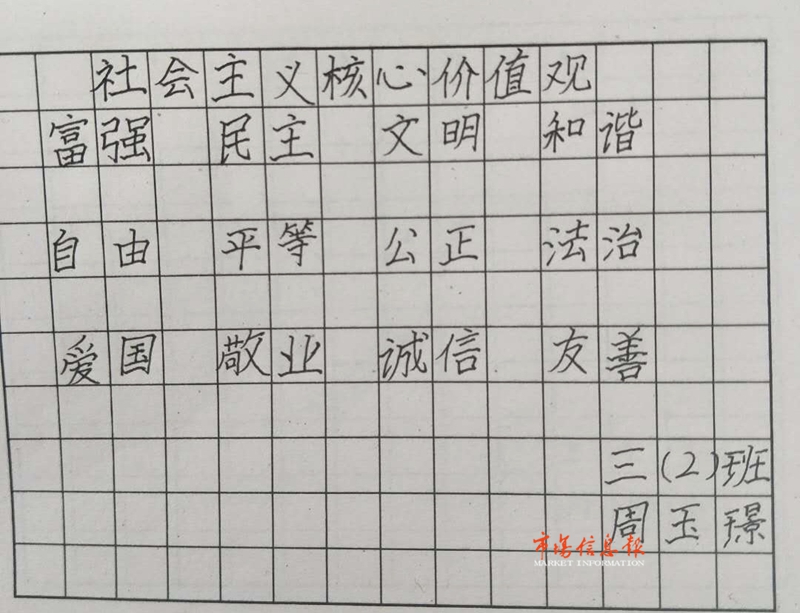 社会主义核心价值观
富强 民主 文明 和谐
自由 平等 公正 法治
爱国 敬业 诚信 友善
三(2)班
周玉璟
市场信息报
MARKET INFORMATION